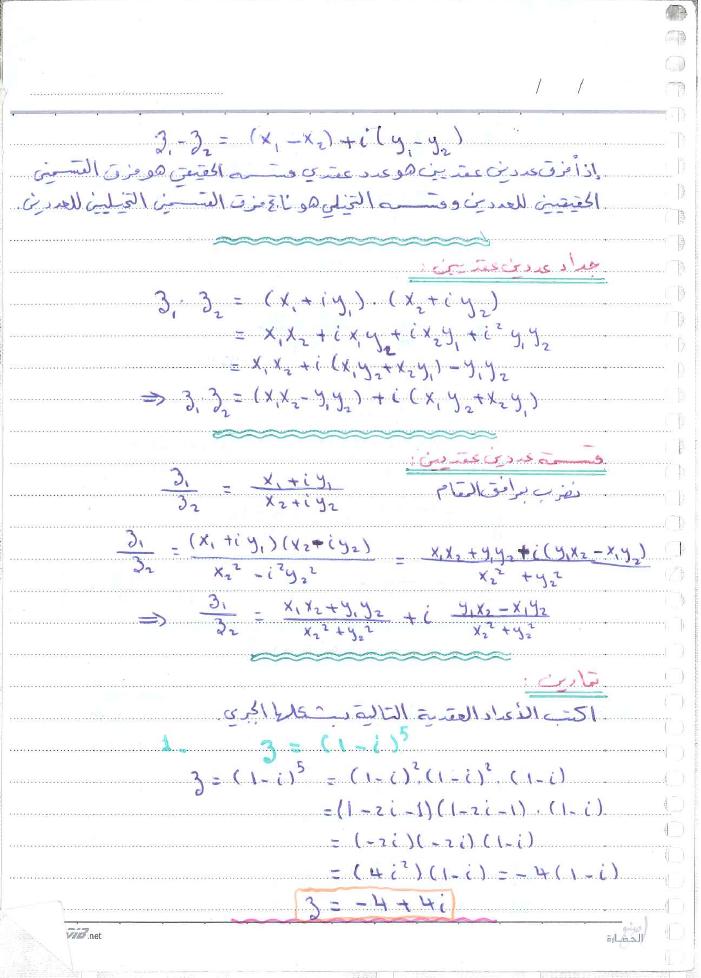 / /
z₁ - z₂ = (x₁ - x₂) + i(y₁ - y₂)
إذاً فرق عددين عقديين هو عدد عقدي قسمه الحقيقي هو فرق القسمين
الحقيقيين للعددين وقسمه التخيلي هو ناتج فرق القسمين التخيليين للعددين.
جداء عددين عقديين:
z₁ . z₂ = (x₁ + iy₁) . (x₂ + iy₂)
= x₁x₂ + ix₁y₂ + ix₂y₁ + i²y₁y₂
= x₁x₂ + i(x₁y₂ + x₂y₁) - y₁y₂
⇒ z₁ . z₂ = (x₁x₂ - y₁y₂) + i(x₁y₂ + x₂y₁)
قسمة عددين عقديين:
z₁/z₂ = (x₁ + iy₁)/(x₂ + iy₂) نضرب بمرافق المقام
z₁/z₂ = (x₁ + iy₁)(x₂ - iy₂)/(x₂² - i²y₂²) = (x₁x₂ + y₁y₂ + i(y₁x₂ - x₁y₂))/(x₂² + y₂²)
⇒ z₁/z₂ = (x₁x₂ + y₁y₂)/(x₂² + y₂²) + i (y₁x₂ - x₁y₂)/(x₂² + y₂²)
تمارين:
اكتب الأعداد العقدية التالية بشكلها الجبري.
1. z = (1-i)⁵
z = (1-i)⁵ = (1-i)².(1-i)².(1-i)
= (1-2i-1)(1-2i-1).(1-i)
= (-2i)(-2i)(1-i)
= (4i²)(1-i) = -4(1-i)
z = -4 + 4i
.net
الحضارة